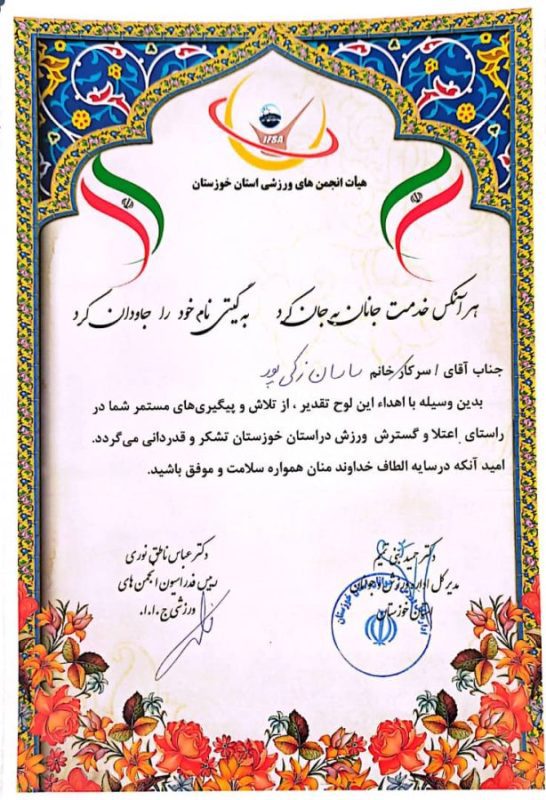 IFSA
هیأت انجمن های ورزشی استان خوزستان
هر آنکس خدمت جانان به جان کرد به گیتی نام خود را جاودان کرد
جناب آقای / سرکار خانم ساسان زکی پور
بدین وسیله با اهداء این لوح تقدیر ، از تلاش و پیگیری‌های مستمر شما در
راستای اعتلا و گسترش ورزش دراستان خوزستان تشکر و قدردانی می‌گردد.
امید آنکه درسایه الطاف خداوند منان همواره سلامت و موفق باشید.
دکتر حمید
مدیر کل اداره ورزش و جوانان
استان خوزستان
دکتر عباس ناطق نوری
رییس فدراسیون انجمن های
ورزشی ج.ا.ا.